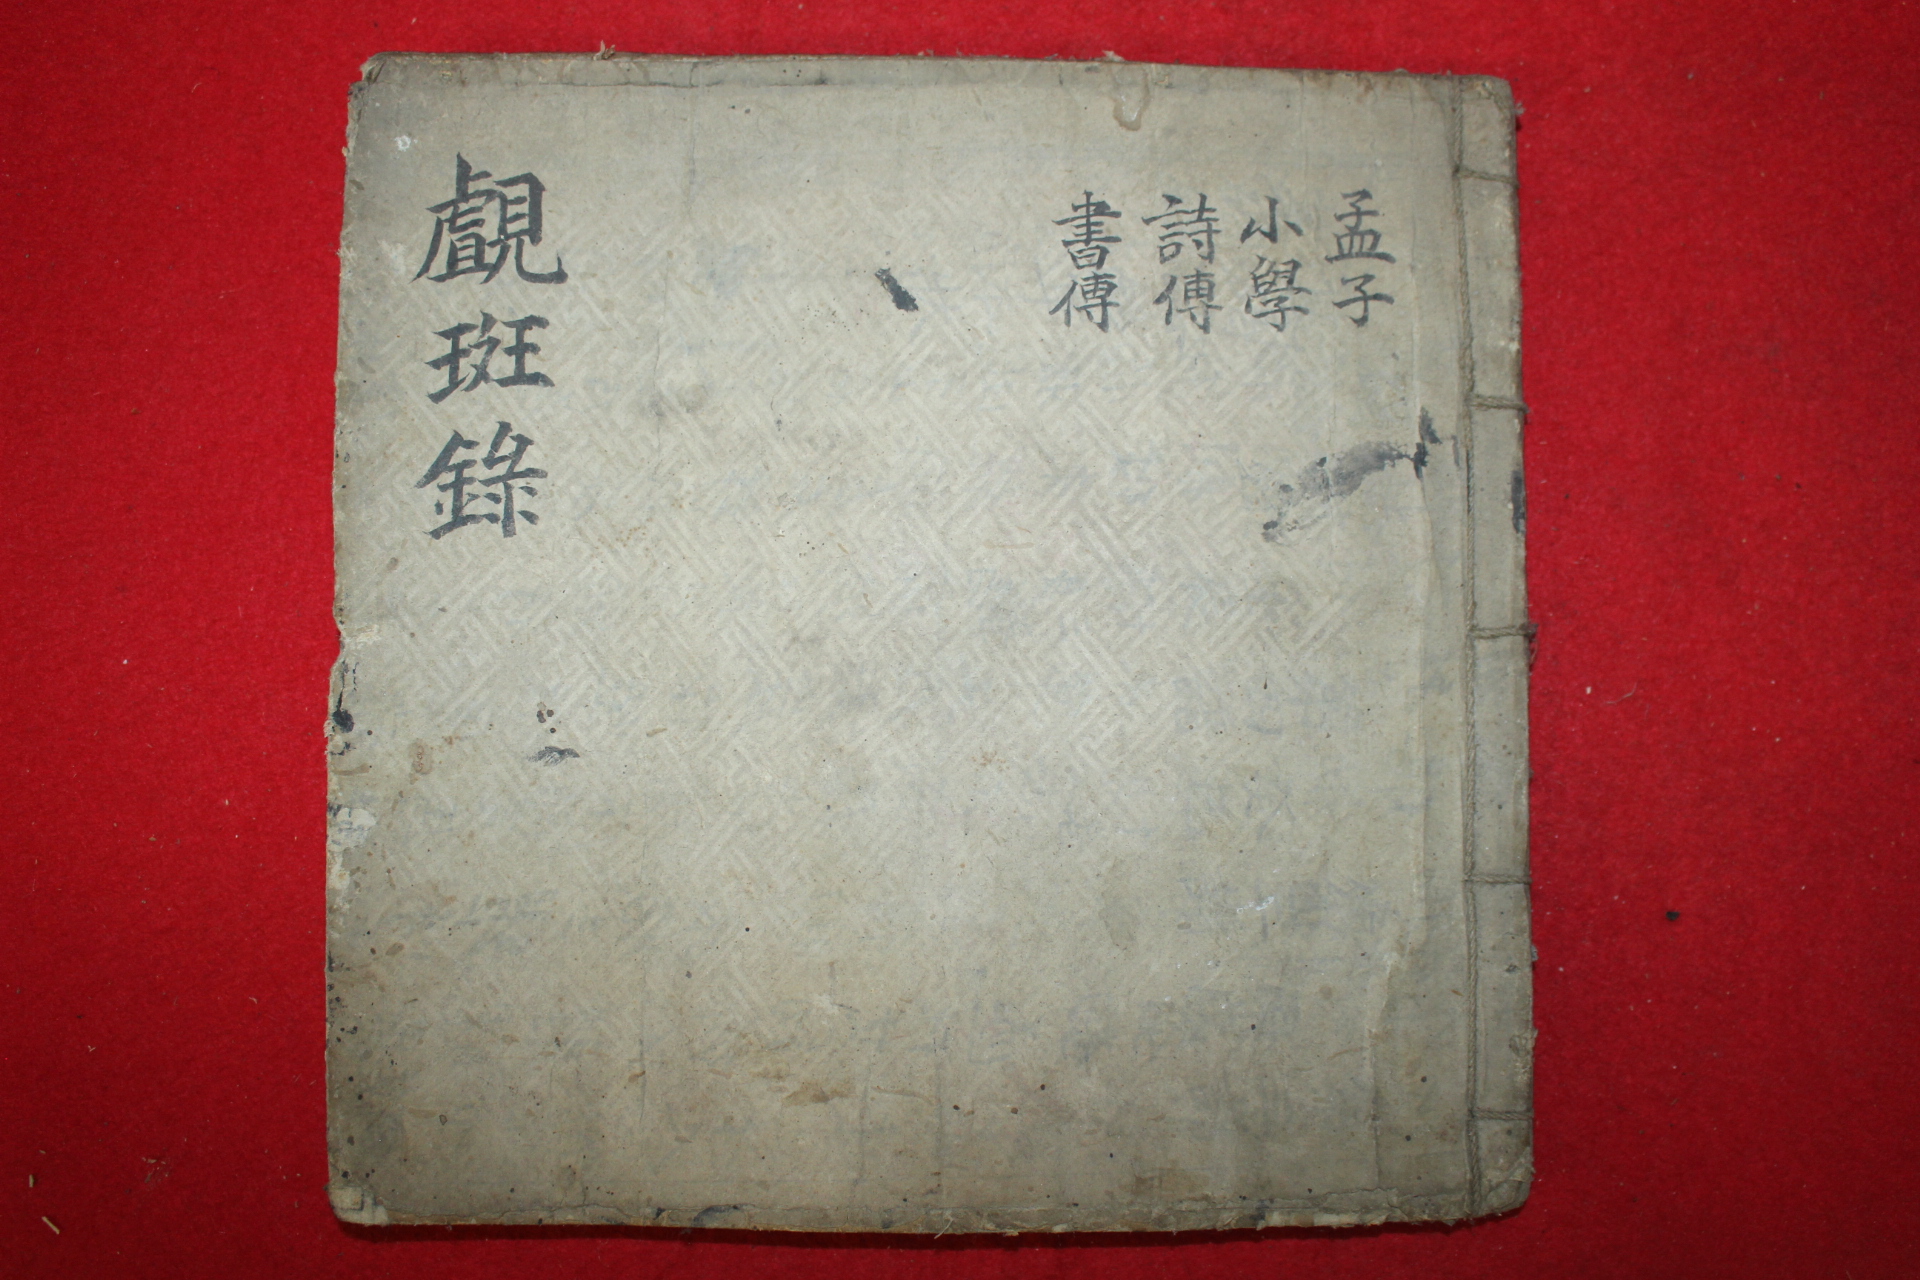 孟子
小學
詩傳
書傳
覰斑錄